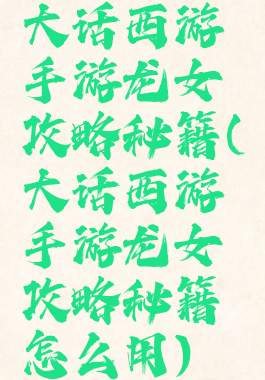 大话西游
手游龙女
攻略秘籍(
大话西游
手游龙女
攻略秘籍
怎么用)